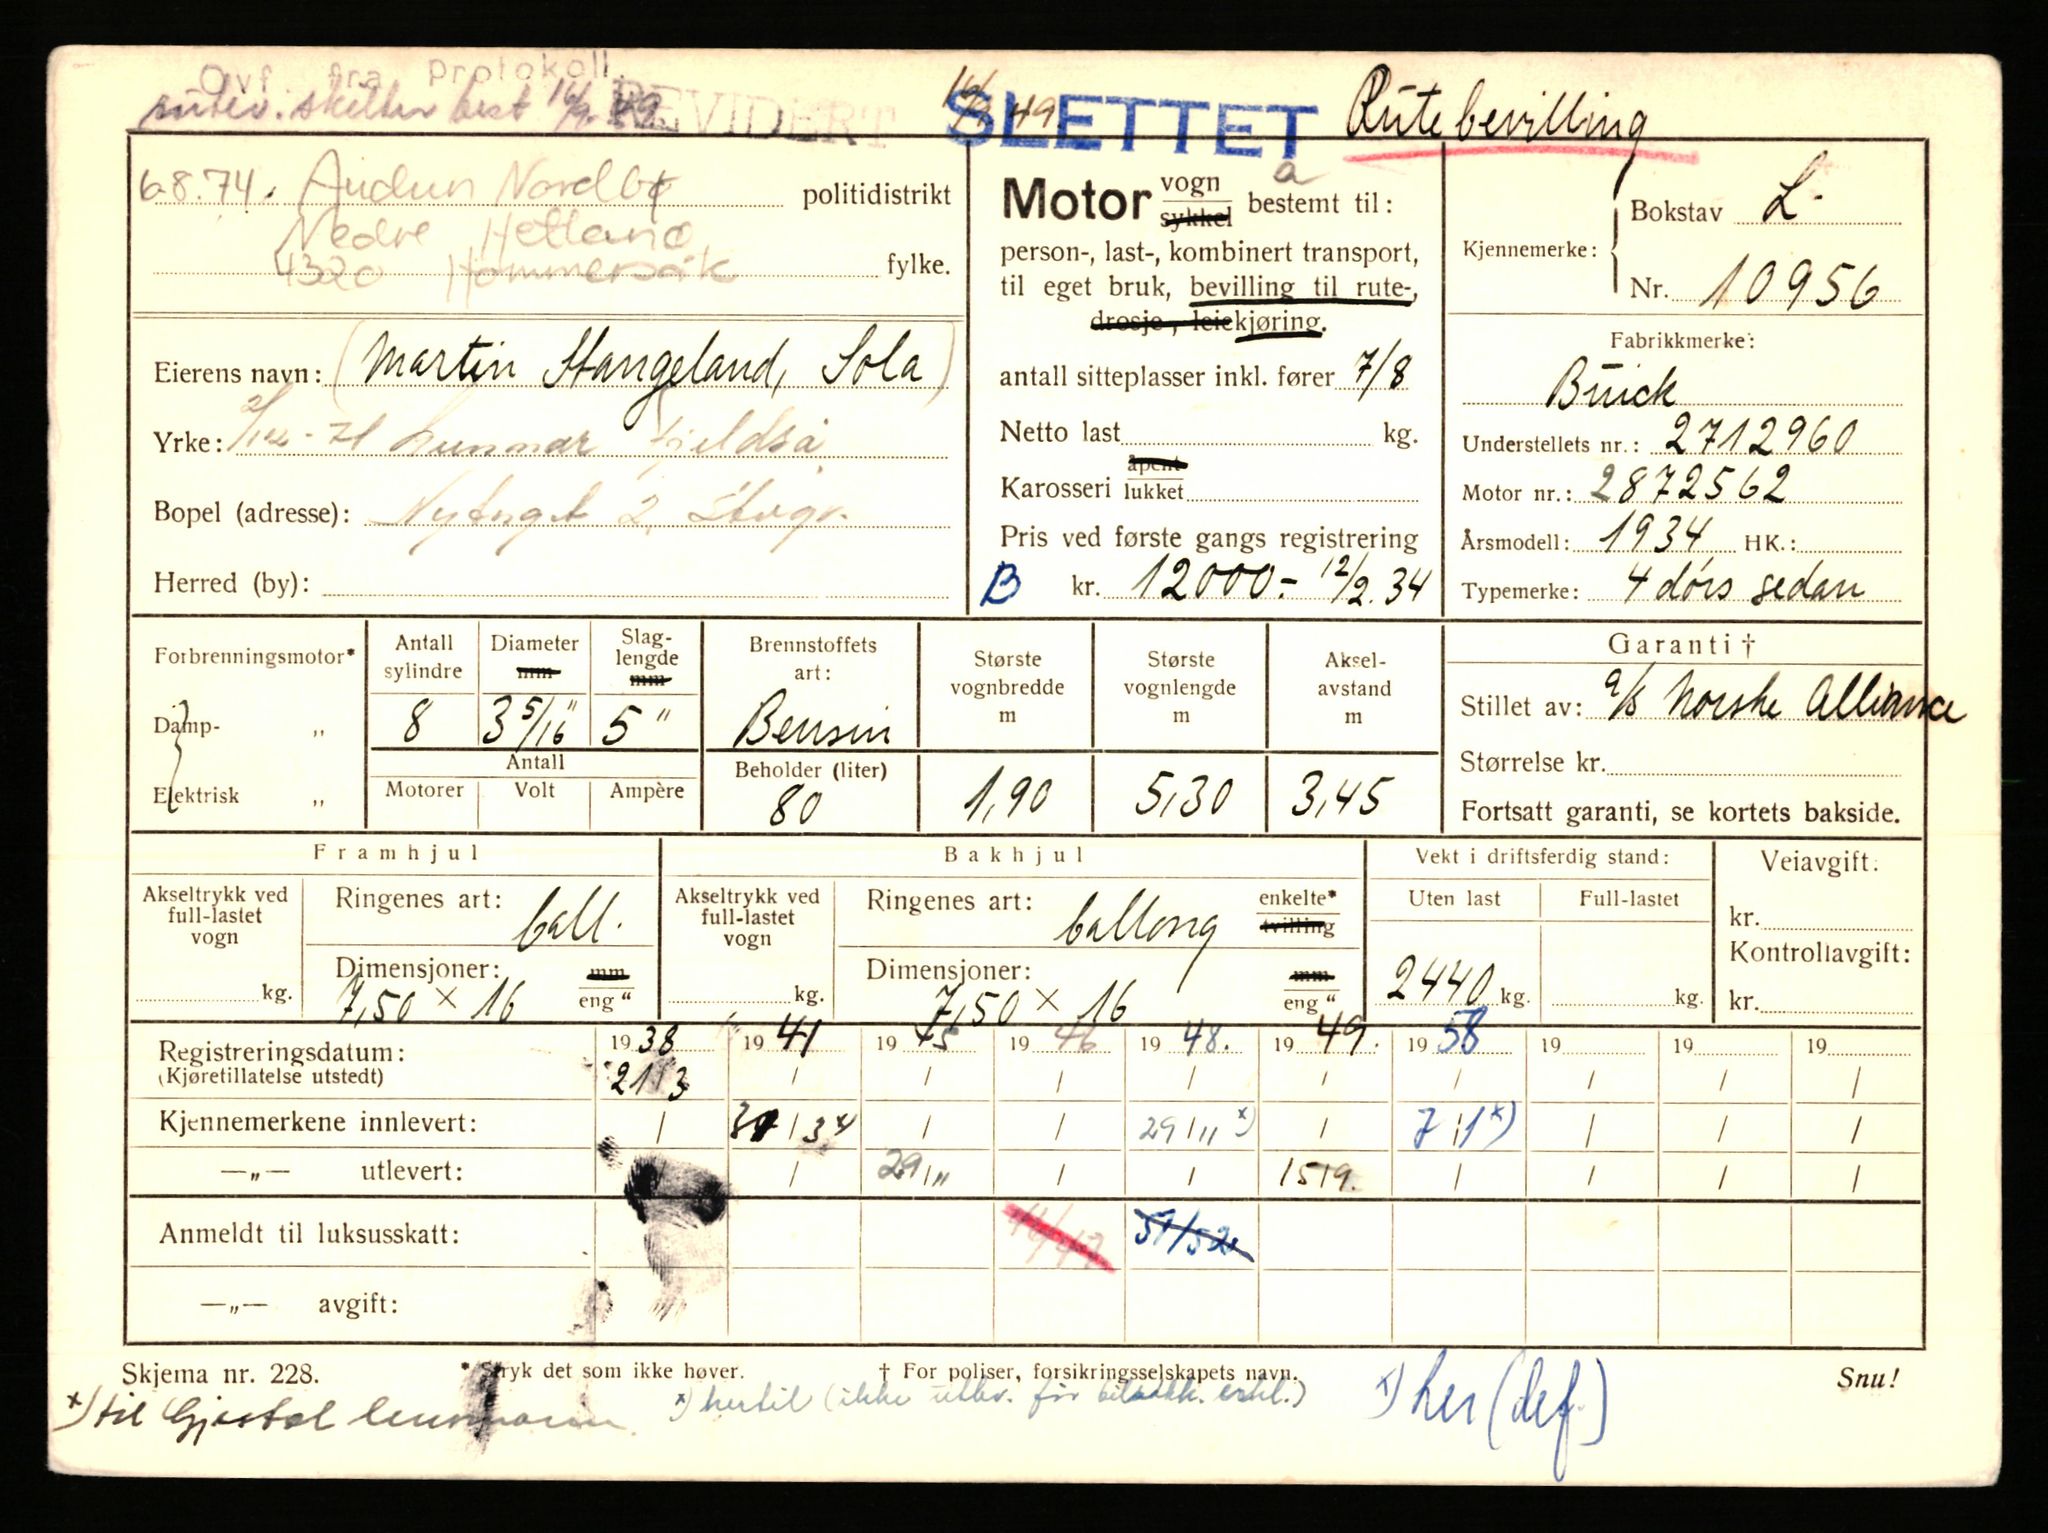 Ovf. fra protokoll.
rutev. skilter best 16/9 49. REVIDERT 16/9 49. SLETTET Rutebevilling
6.8.74. Audun Nordbø politidistrikt
Nedre Hetland
4320 Hommersåk fylke.
Eierens navn: (Martin Stangeland, Sola)
Yrke: 2/12-71 Gunnar Fjeldså
Bopel (adresse): Nytorget 2, Stvgr.
Herred (by):
Motor vogn sykkel bestemt til: a
person-, last-, kombinert transport,
til eget bruk, bevilling til rute-,
drosje-, leiekjøring.
antall sitteplasser inkl. fører 7/8
Netto last kg.
Karosseri åpent lukket
Pris ved første gangs registrering
B kr. 12000.- 12/2.34
Kjennemerke: Bokstav L-
Nr. 10956
Fabrikkmerke:
Buick
Understellets nr.: 2712960
Motor nr.: 2872562
Årsmodell: 1934 HK.:
Typemerke: 4 dørs sedan
Forbrenningsmotor*
Damp- „
Elektrisk „
Antall sylindre
8
Diameter mm
3 5/16"
Slaglengde mm
5"
Antall
Motorer Volt Ampère
Brennstoffets art:
Bensin
Beholder (liter)
80
Største vognbredde m
1,90
Største vognlengde m
5,30
Akselavstand m
3,45
Garanti †
Stillet av: a/s Norske Alliance
Størrelse kr.
Fortsatt garanti, se kortets bakside.
Framhjul
Akseltrykk ved full-lastet vogn
kg.
Ringenes art: ball.
Dimensjoner: mm eng "
7,50 × 16
Bakhjul
Akseltrykk ved full-lastet vogn
kg.
Ringenes art: ballong enkelte* tvilling
Dimensjoner: mm eng "
7,50 × 16
Vekt i driftsferdig stand:
Uten last Full-lastet
2440 kg. kg.
Veiavgift:
kr.
Kontrollavgift:
kr.
Registreringsdatum: 1938 1941 1945 1946 1948. 1949. 1958 19 19 19
(Kjøretillatelse utstedt) 21/3 / / / / / / / / /
Kjennemerkene innlevert: / 3/3 x) / / 29/11 x) / 7/1 x) / / /
—„— utlevert: / / 29/11 / / 15/9. / / / /
Anmeldt til luksusskatt: 46/47 51/52
—„— avgift:
Skjema nr. 228. * Stryk det som ikke høver. † For poliser, forsikringsselskapets navn. Snu!
x) til Gjestal lensmann x) hertil (ikke utlev. før bilsakk. erkl.) x) her (def.)